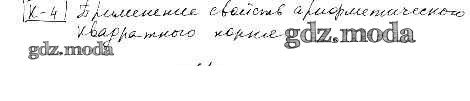 К-4 Применение свойств арифметического
квадратного корня gdz.moda
gdz.moda